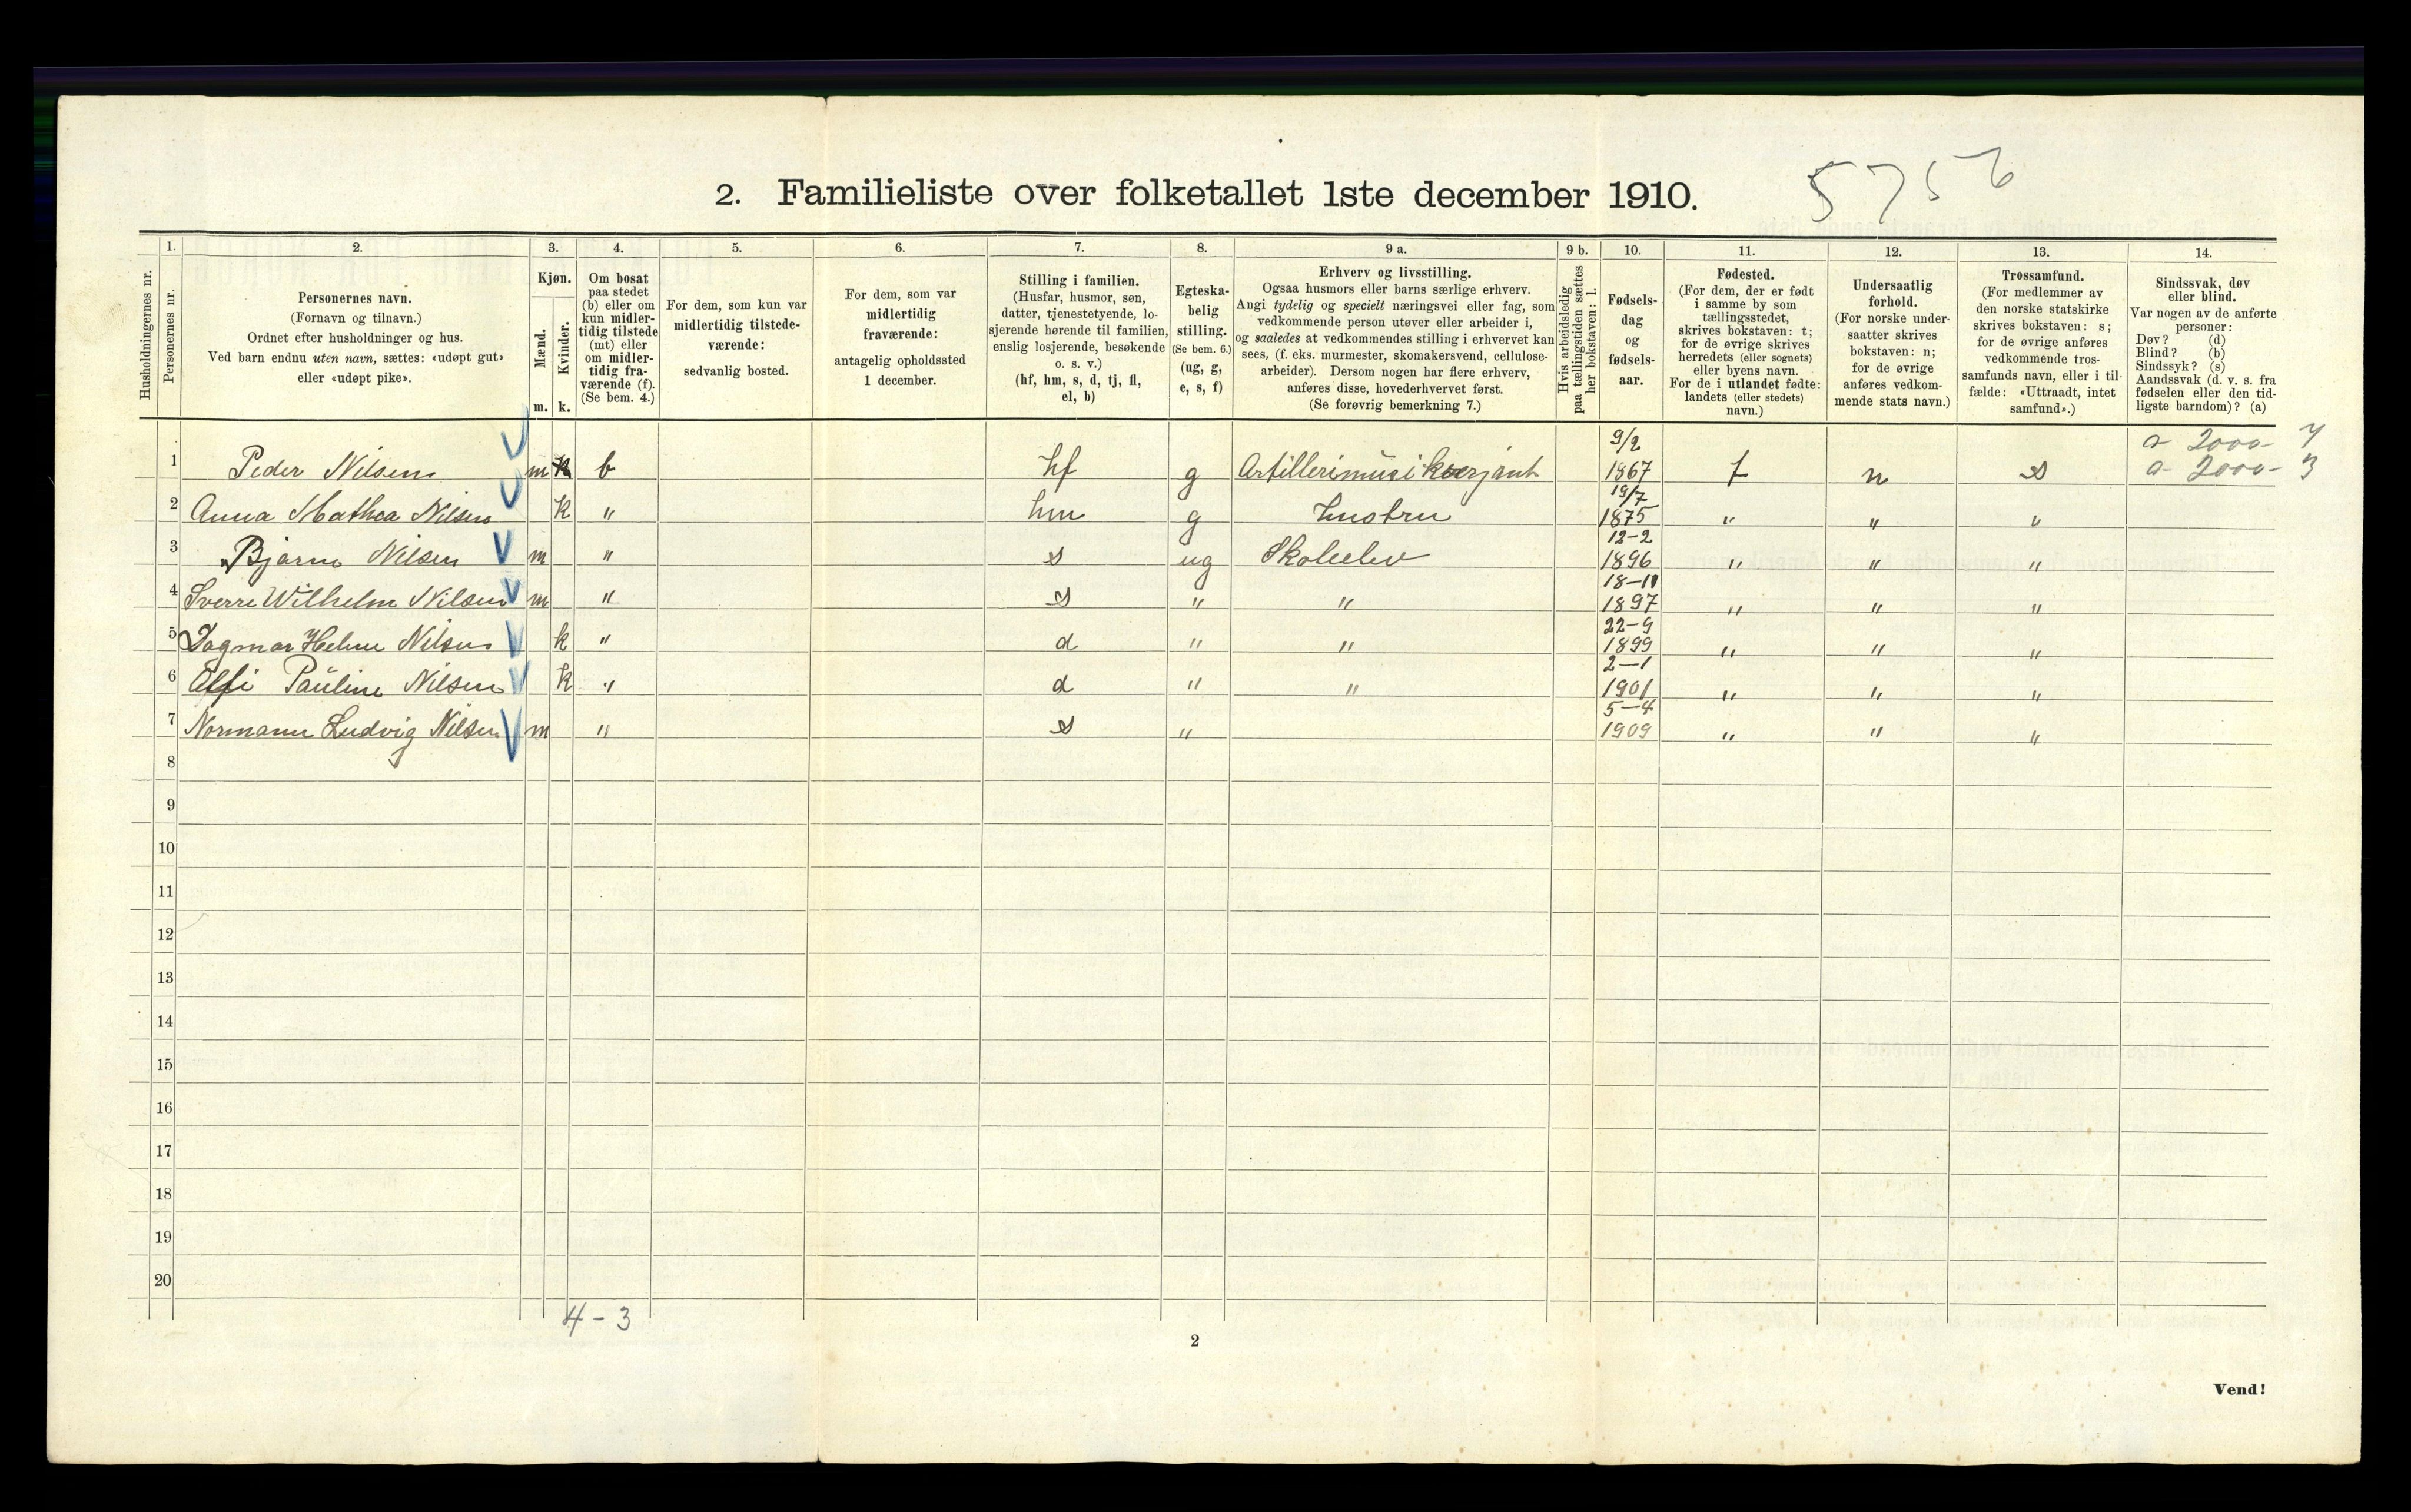 5756
2. Familieliste over folketallet 1ste december 1910.
Husholdningernes nr.
1.
Personernes nr.
2.
Personernes navn.
(Fornavn og tilnavn.)
Ordnet efter husholdninger og hus.
Ved barn endnu uten navn, sættes: «udøpt gut»
eller «udøpt pike».
3.
Kjøn.
Mænd.
Kvinder.
m. k.
4.
Om bosat
paa stedet
(b) eller om
kun midler-
tidig tilstede
(mt) eller
om midler-
tidig fra-
værende (f).
(Se bem. 4.)
5.
For dem, som kun var
midlertidig tilstede-
værende:
sedvanlig bosted.
6.
For dem, som var
midlertidig
fraværende:
antagelig opholdssted
1 december.
7.
Stilling i familien.
(Husfar, husmor, søn,
datter, tjenestetyende, lo-
sjerende hørende til familien,
enslig losjerende, besøkende
o. s. v.)
(hf, hm, s, d, tj, fl,
el, b)
8.
Egteska-
belig
stilling.
(Se bem. 6.)
(ug, g,
e, s, f)
9 a.
Erhverv og livsstilling.
Ogsaa husmors eller barns særlige erhverv.
Angi tydelig og specielt næringsvei eller fag, som
vedkommende person utøver eller arbeider i,
og saaledes at vedkommendes stilling i erhvervet kan
sees, (f. eks. murmester, skomakersvend, cellulose-
arbeider). Dersom nogen har flere erhverv,
anføres disse, hovederhvervet først.
(Se forøvrig bemerkning 7.)
9 b.
Hvis arbeidsledig
paa tællingstiden sættes
her bokstaven: l.
10.
Fødsels-
dag
og
fødsels-
aar.
11.
Fødested.
(For dem, der er født
i samme by som
tællingsstedet,
skrives bokstaven: t;
for de øvrige skrives
herredets (eller sognets)
eller byens navn.
For de i utlandet fødte:
landets (eller stedets)
navn.)
12.
Undersaatlig
forhold.
(For norske under-
saatter skrives
bokstaven: n;
for de øvrige
anføres vedkom-
mende stats navn.)
13.
Trossamfund.
(For medlemmer av
den norske statskirke
skrives bokstaven: s;
for de øvrige anføres
vedkommende tros-
samfunds navn, eller i til-
fælde: «Uttraadt, intet
samfund».)
14.
Sindssvak, døv
eller blind.
Var nogen av de anførte
personer:
Døv? (d)
Blind? (b)
Sindssyk? (s)
Aandssvak (d. v. s. fra
fødselen eller den tid-
ligste barndom)? (a)
1 Peder Nilsen m b hf g Artillerimusiksersjant 9/2 1867 t n s
2000-
a 2000- 3
2 Anna Mathea Nilsen k " hm g hustru 19/7 1875 " " "
3 Bjarne Nilsen m " s ug Skoleelev 12-2 1896 " " "
4 Sverre Wilhelm Nilsen m " s " " 18-11 1897 " " "
5 Dagmar Helene Nilsen k " d " " 22-9 1899 " " "
6 Alfi Pauline Nilsen k " d " " 2-1 1901 " " "
7 Normann Ludvig Nilsen m " s " 5-4 1909 " " "
8
9
10
11
12
13
14
15
16
17
18
19
20
4-3
2
Vend!